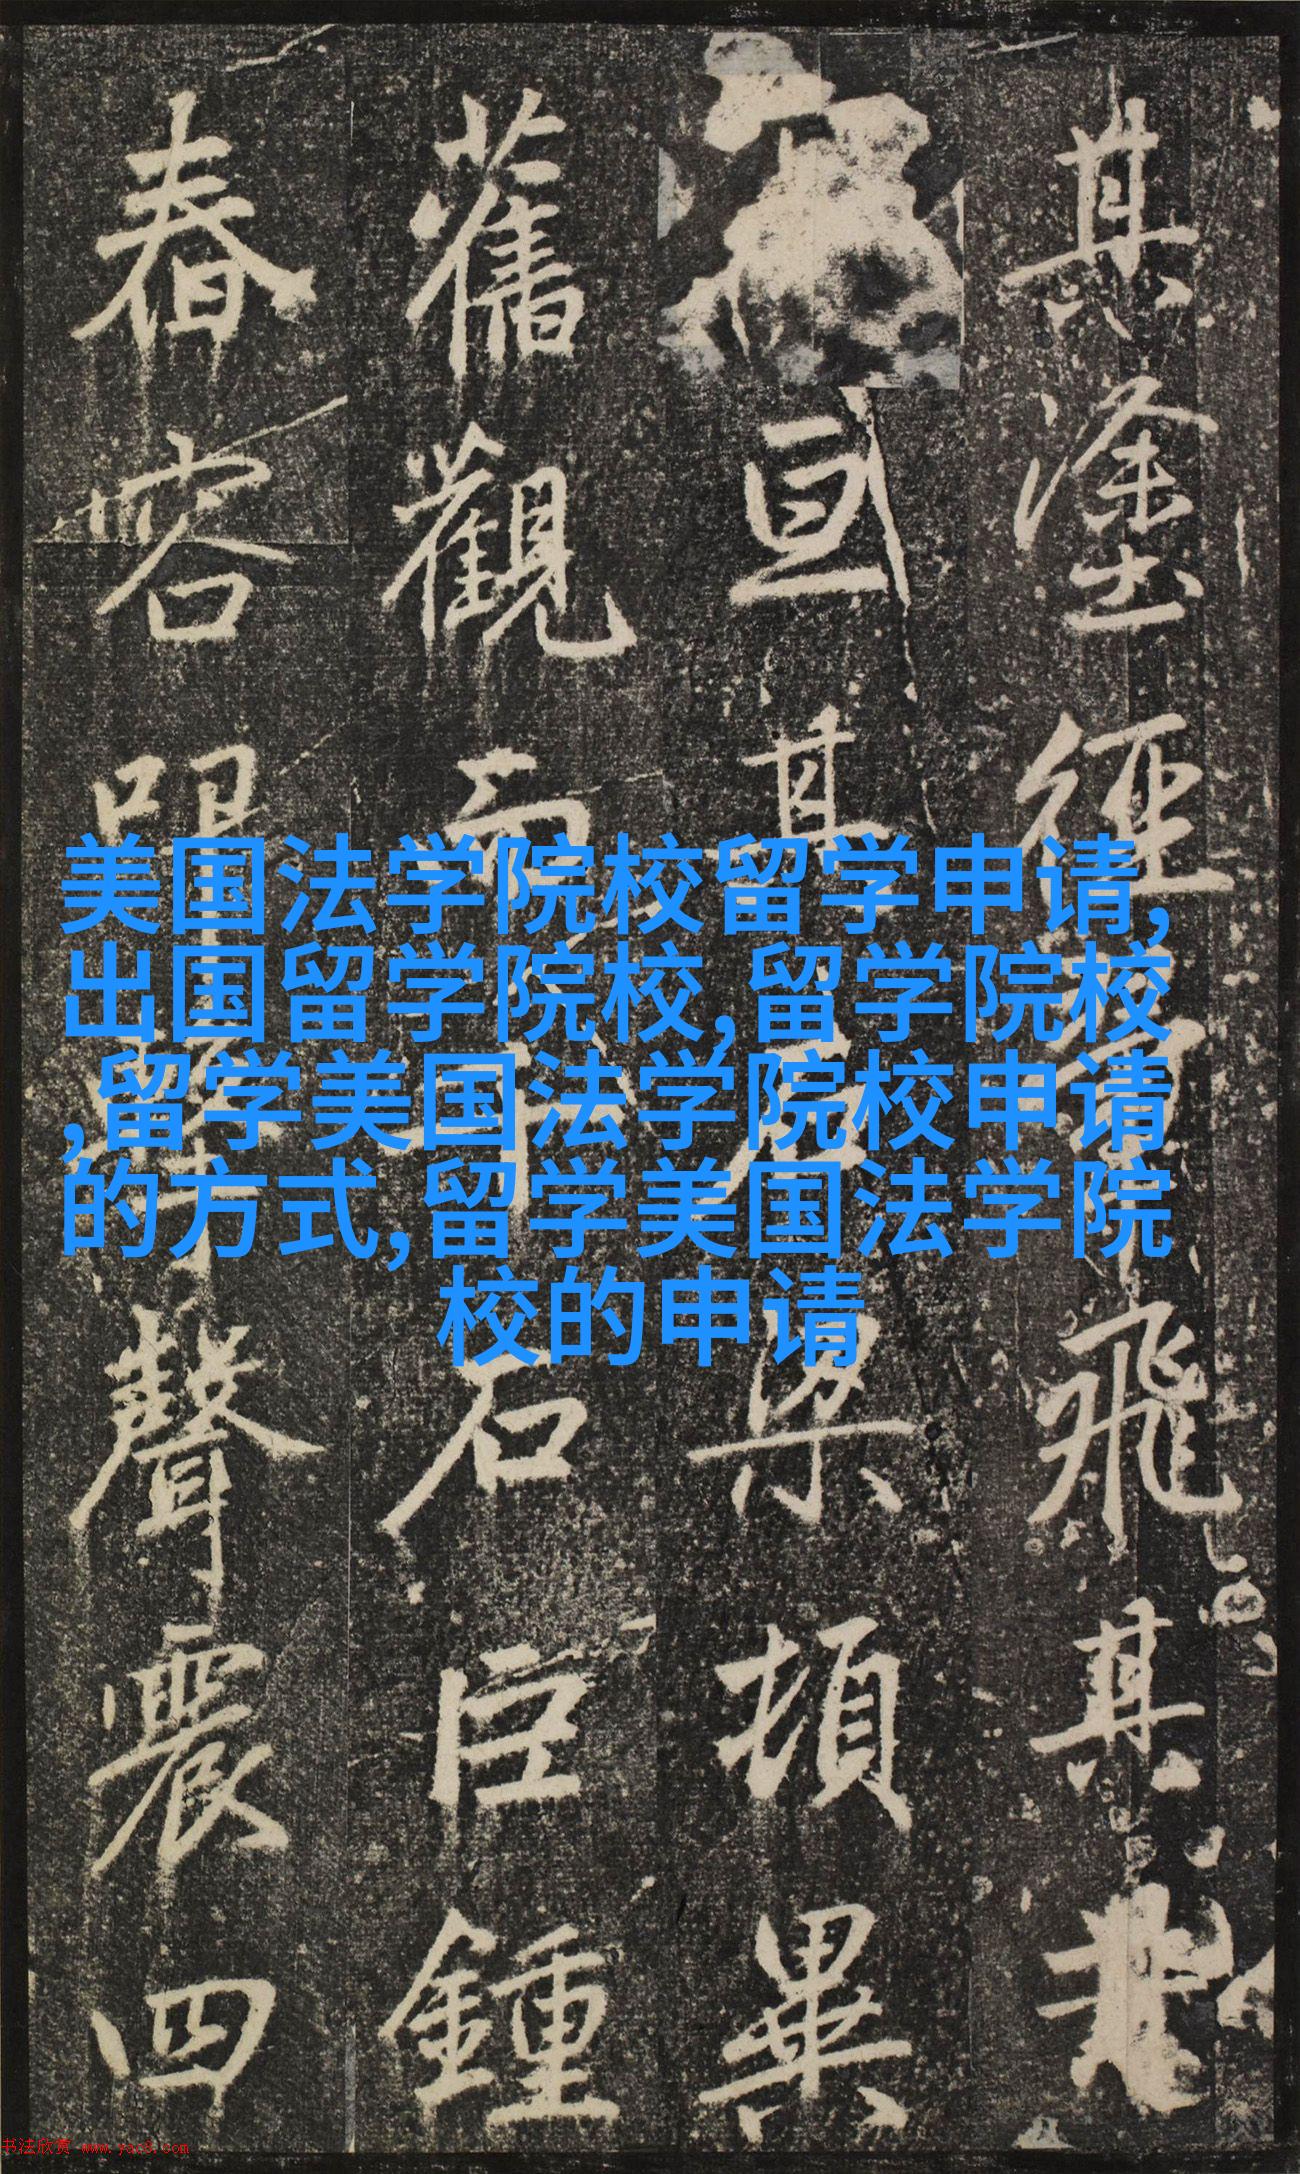 其塗經
飛其
亘其
梁頓畢
舊觀
石巨鍾
春容
聲震四
美国法学院校留学申请,
出国留学院校,留学院校
,留学美国法学院校申请
的方式,留学美国法学院
校的申请
书法欣赏 www.yac8.com